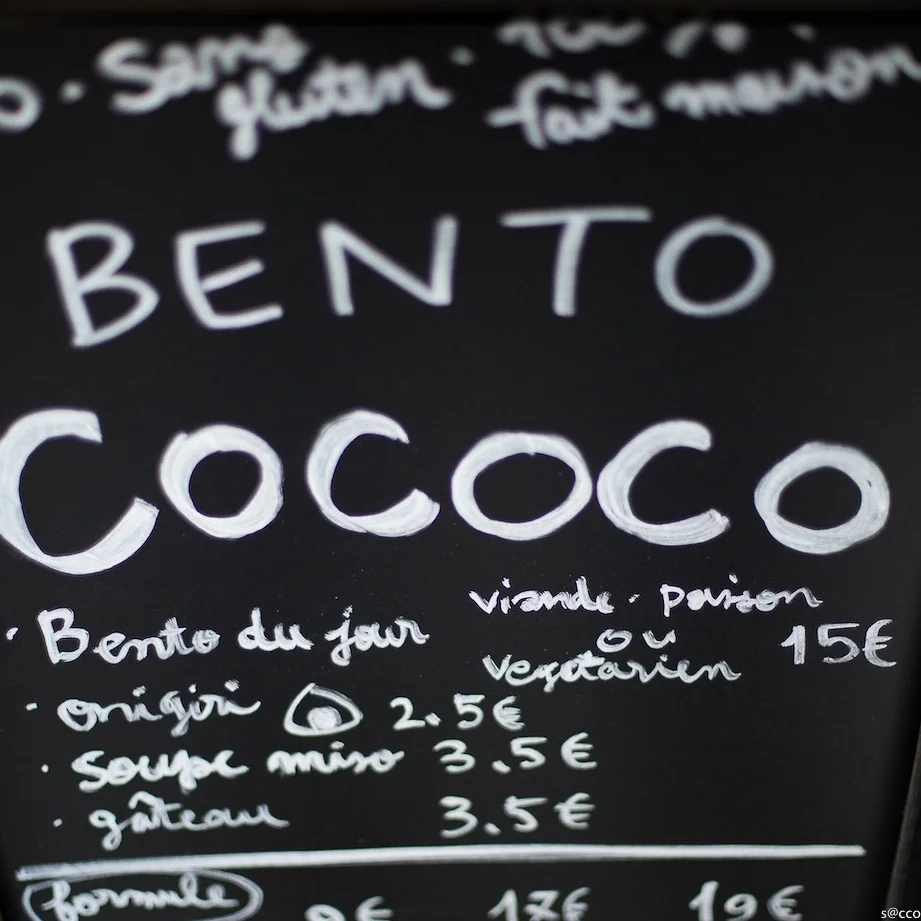 Sans 100%
gluten · fait maison
BENTO
COCOCO
· Bento du jour viande · poisson ou vegetarien 15€
· onigiri 2.5€
· soupe miso 3.5€
· gâteau 3.5€
formule 17€ 19€
s@cco